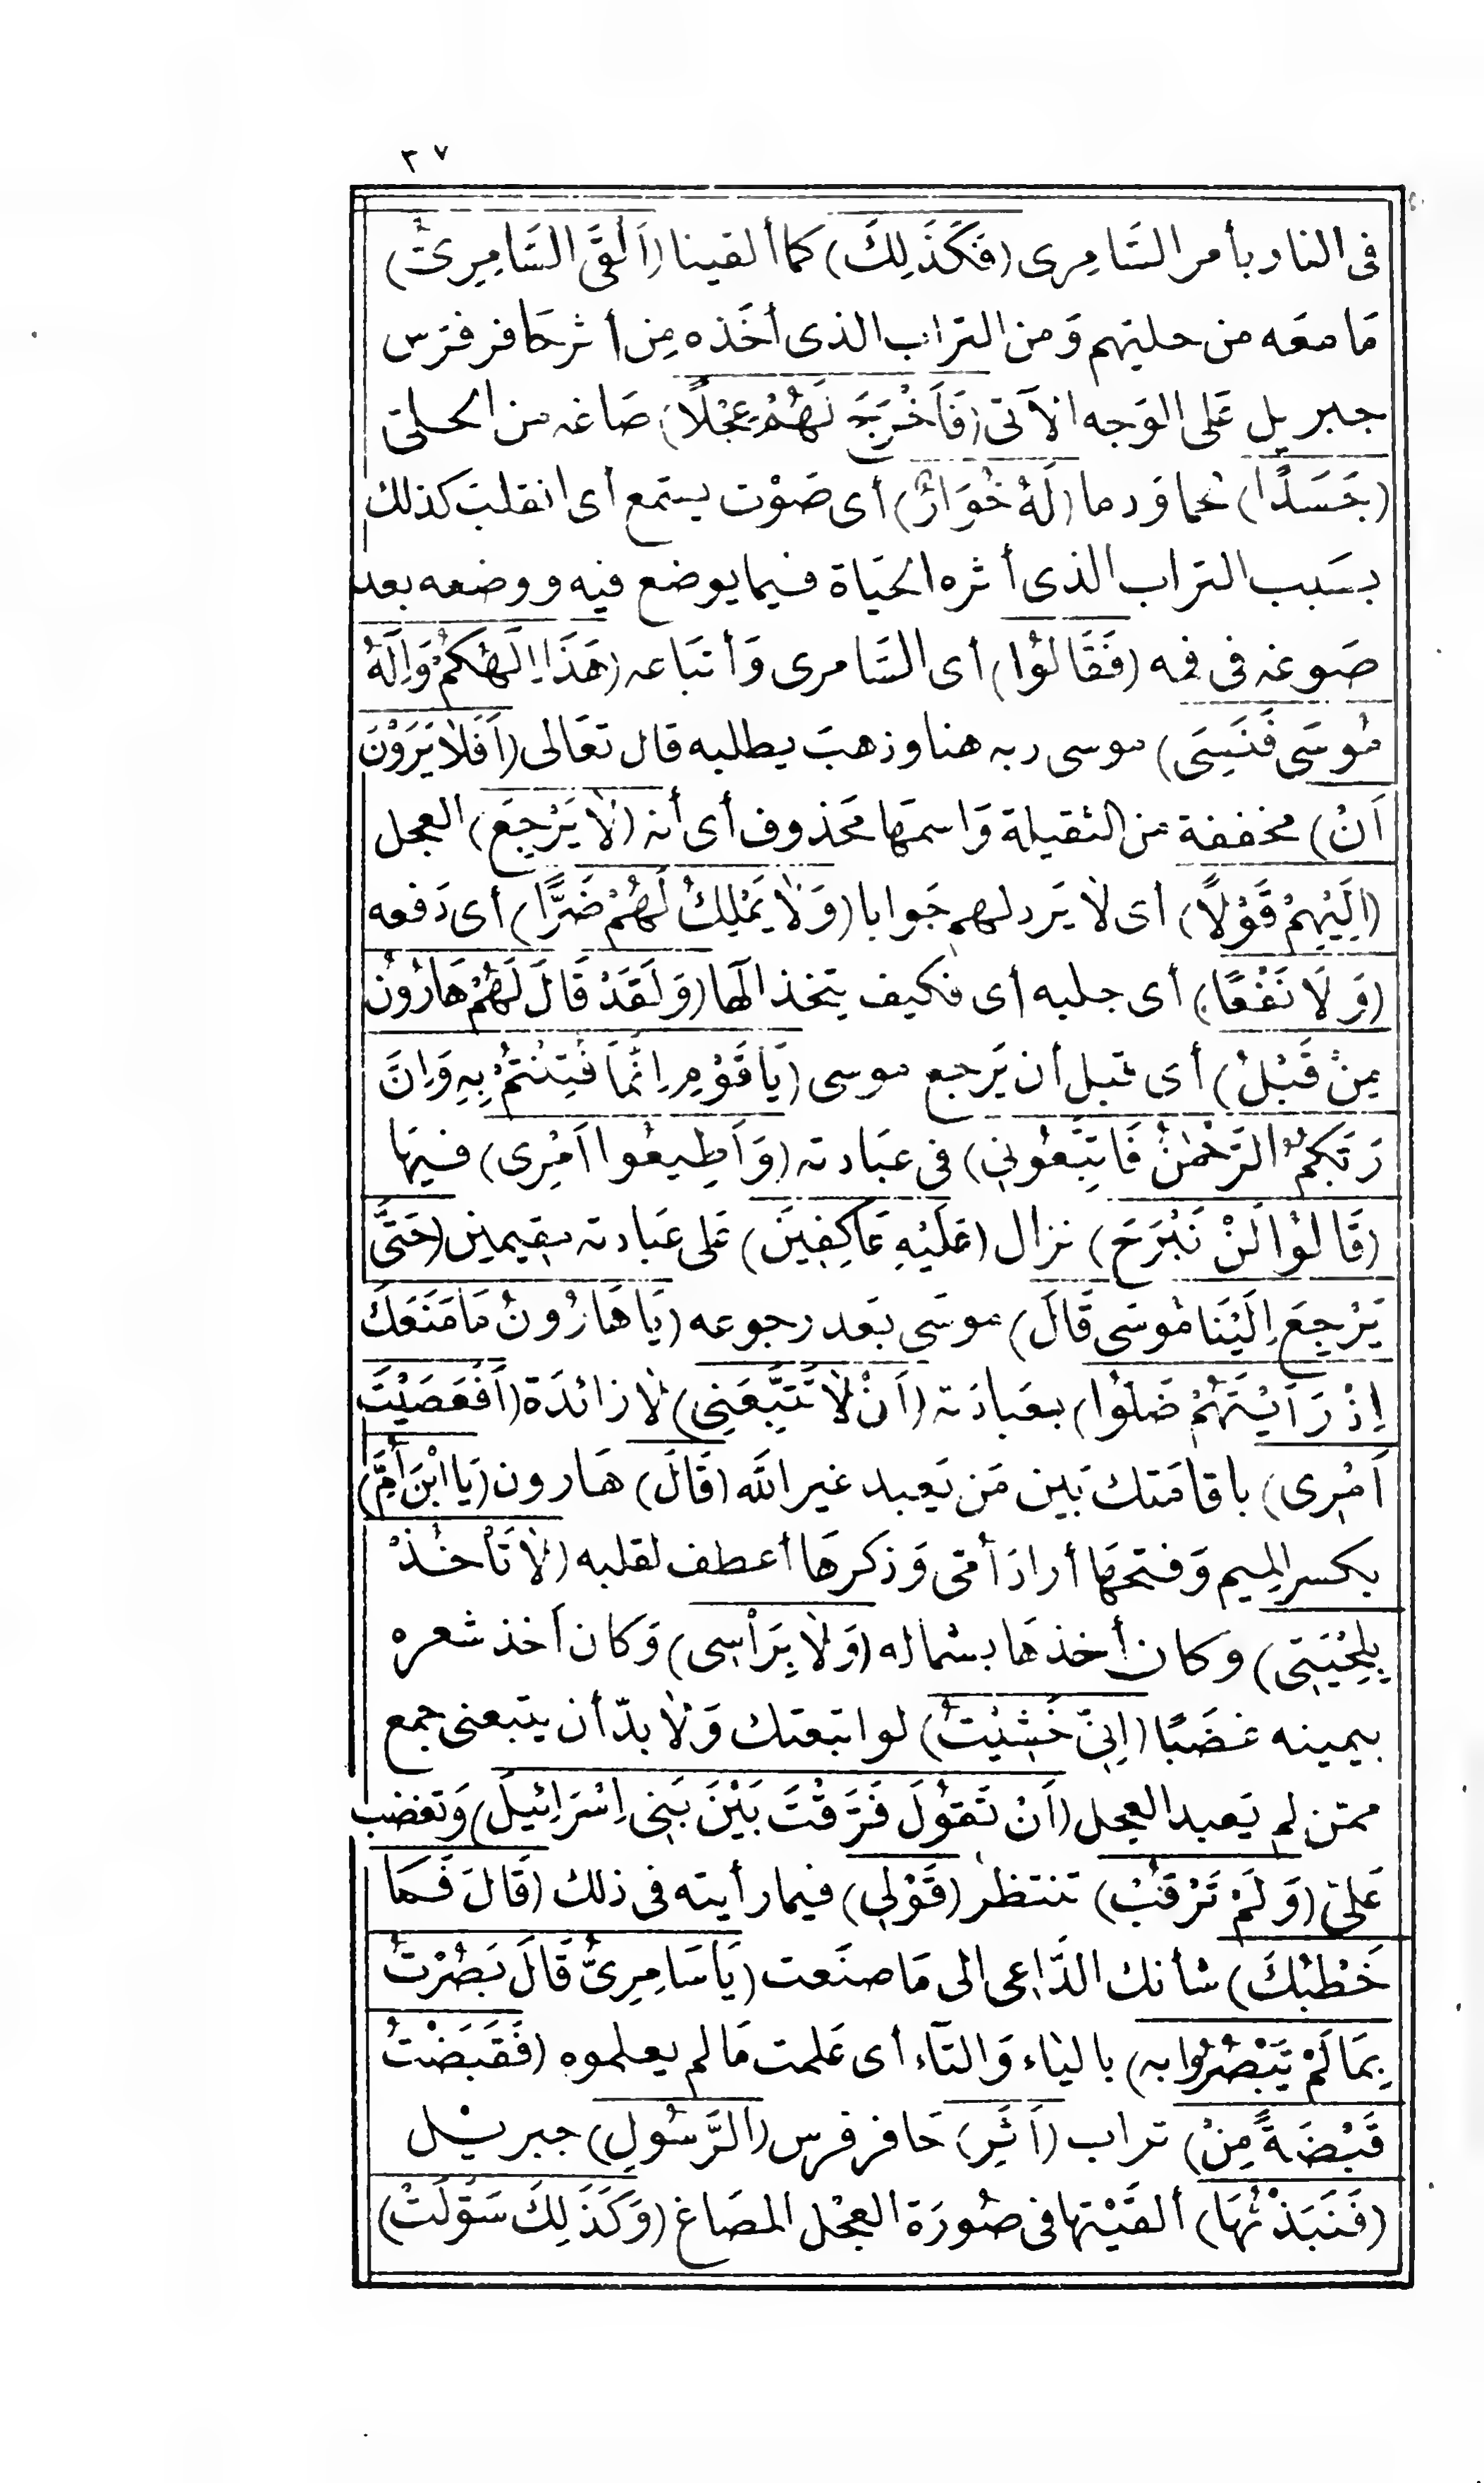 ٣٧
فى النار بأمر السَّامِرى (فَكَذَلِكَ) كما ألقينا (اَلْقَى السَّامِرِىُّ)
مَا معَه من حليهم وَمن التراب الذى أخَذه مِن أثر حَافر فرَس
جبريل عَلى الوَجه الآتى (فَاَخْرَجَ لَهُمْ عِجْلًا) صَاغه من الحلىّ
(جَسَدًا) لحما وَدما (لَهُ خُوَارٌ) أى صَوْت يستمع أى انقلبَ كذلك
بسَبب التراب الذى أثره الحيَاة فيما يوضع فيه ووضعه بعد
صَوغه فى فمه (فَقَالُوْا) أى السَّامرى وَأتبَاعه (هَذَا اِلَهُكُمْ وَاِلَهُ
مُوسَى فَنَسِىَ) موسى ربه هنا وذهبَ يطلبه قال تعَالى (اَفَلَا يَرَوْنَ
اَنْ) مخففة من الثقيلة وَاسمهَا مَحذوف أى أنه (لَا يَرْجِعَ) العجل
(اِلَيْهِمْ قَوْلًا) أى لَا يَرد لهم جَوابا (وَلَا يَمْلِكُ لَهُمْ ضَرًّا) أى دَفعه
(وَلَا نَفْعًا) أى جلبه أى فكيف يتخذ الَها (وَلَقَدْ قَالَ لَهُمْ هَارُونُ
مِنْ قَبْلُ) أى قبل أن يَرجع موسى (يَا قَوْمِ اِنَّمَا فُتِنْتُمْ بِهِ وَاِنَّ
رَبَّكُمُ الرَّحْمٰنُ فَاتَّبِعُونِى) فى عبَادته (وَاَطِيعُوا اَمْرِى) فيهَا
(قَالُوْا لَنْ نَبْرَحَ) نزال (عَلَيْهِ عَاكِفِينَ) عَلى عبَادته مقيمين (حَتَّى
يَرْجِعَ اِلَيْنَا مُوسَى قَالَ) موسَى بَعد رجوعه (يَا هَارُونُ مَا مَنَعَكَ
اِذْ رَاَيْتَهُمْ ضَلّوُا) بعبادَته (اَنْ لَا تَتَّبِعَنِى) لَا زائدَة (اَفَعَصَيْتَ
اَمْرِى) باقامَتك بَين مَن يَعبد غير اللّه (قَالَ) هَارون (يَا ابْنَ أُمَّ)
بكسر الميم وَفتحهَا أرادَ أمّى وَذكرهَا أعطف لقلبه (لَا تَأْخُذْ
بِلِحْيَتِى) وكان أخذهَا بشماله (وَلَا بِرَاْسِى) وَكان أخذ شعره
بيمينه غضَبًا (اِنِّى خَشِيْتُ) لو اتبعتك وَلَا بدّ أن يتبعنى جمع
ممّن لم يَعبد العجل (اَنْ تَقُولَ فَرَّقْتَ بَيْنَ بَنِى اِسْرَائِيلَ) وَتغضب
عَلىّ (وَلَمْ تَرْقُبْ) تنتظر (قَوْلِى) فيما رأيته فى ذلك (قَالَ فَمَا
خَطْبُكَ) شأنك الدَّاعى الى مَا صنَعت (يَا سَامِرِىُّ قَالَ بَصُرْتُ
بِمَا لَمْ يَبْصُرُوا بِه) باليَاء وَالتَّاء أى عَلمت مَا لم يعلموه (فَقَبَضْتُ
قَبْضَةً مِنْ) تراب (اَثَرِ) حَافر فرس (الرَّسُولِ) جبريل
(فَنَبَذْتُهَا) ألقَيْتها فى صُورَة العجْل المصَاغ (وَكَذَلِكَ سَوَّلَتْ)